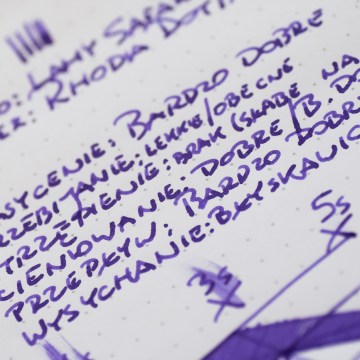 O: LAMY SAFAR
ER: RHODIA DOT
SYCENIE: BARDZO DOBRE
RZEBIJANIE: LEKKIE/OBECNE
TRZĘPIENIE: BRAK (SŁABE NA
CIENIOWANIE: DOBRE/B. DO
PRZEPŁYW: BARDZO DOBR
WYSYCHANIE: BŁYSKAWIC
5s
3s